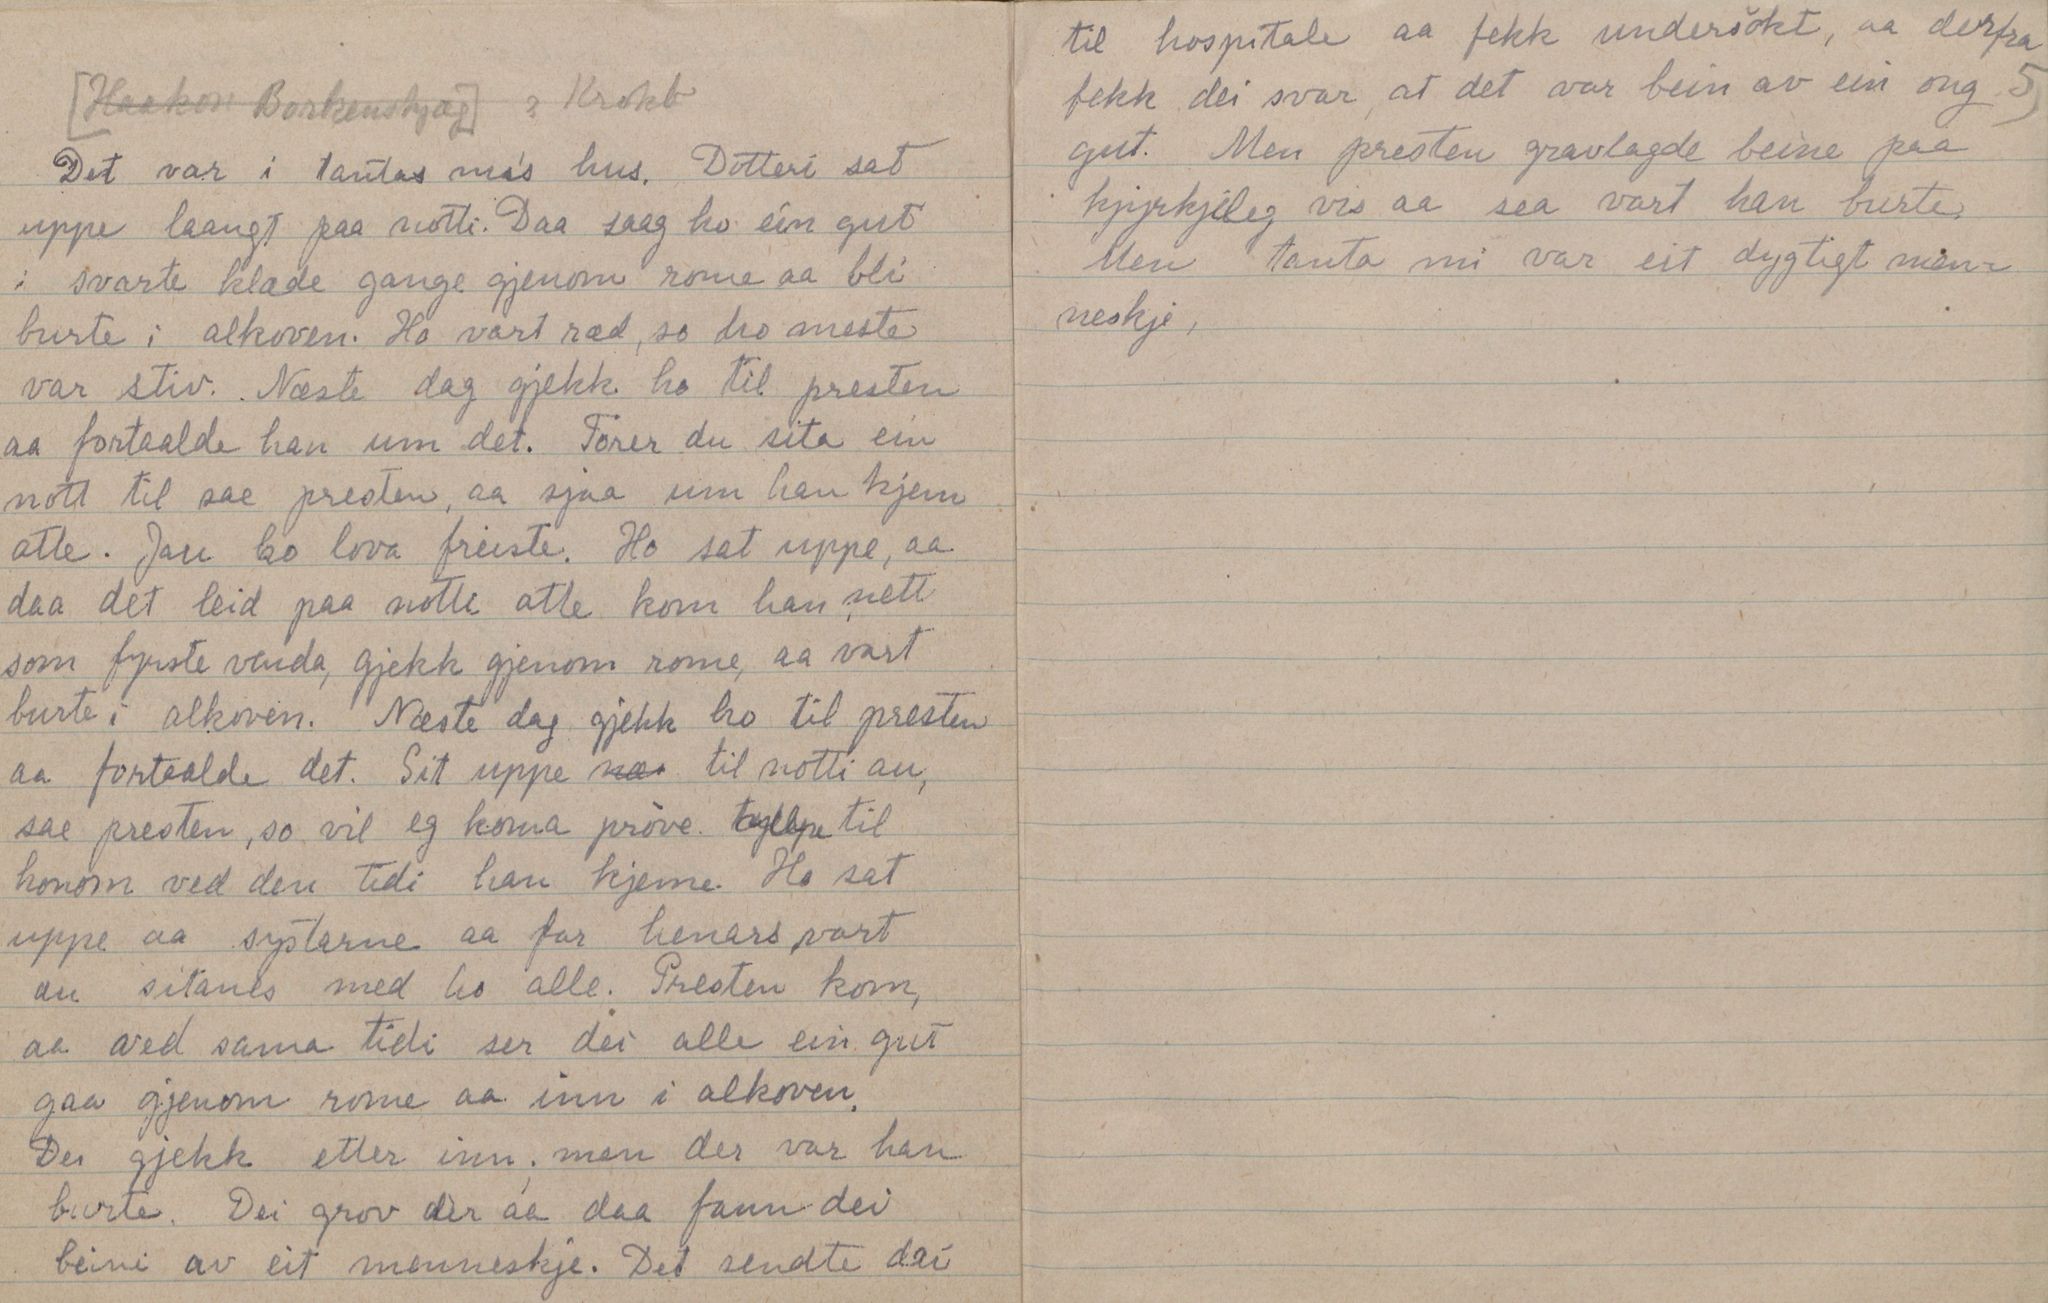 [Haakon Borkenshjæg] ? Krokb
Det var i tantas mi's hus. Dotteri sat
uppe laangt paa notti. Daa saag ho ein gut
i svarte klæde gange gjenom rome aa bli
burte i alkoven. Ho vart ræd, so ho meste
var stiv. Næste dag gjekk ho til presten
aa fortaalde han um det. Törer du sita ein
nott til sae presten, aa sjaa um han kjem
atte. Jau ho lova freiste. Ho sat uppe, aa
daa det leid paa notti atte kom han nett
som fyrste venda, gjekk gjenom rome, aa vart
burte i alkoven. Næste dag gjekk ho til presten
aa fortaalde det. Sit uppe til notti au,
sae presten, so vil eg koma pröve til
honom ved den tidi han kjeme. Ho sat
uppe aa systarne aa far henars vart
au sitanes med ho alle. Presten kom,
aa ved sama tidi ser dei alle ein gut
gaa gjenom rome aa inn i alkoven.
Dei gjekk etter inn, men der var han
burte. Dei grov der aa daa fann dei
beini av eit menneskje. Det sendte dei
til hospitale aa fekk undersökt, aa derfra
fekk dei svar, at det var bein av ein ong 5)
gut. Men presten gravlagde beine paa
kjyrkjeleg vis aa sea vart han burte.
Men tanta mi var eit dygtigt men-
neskje,